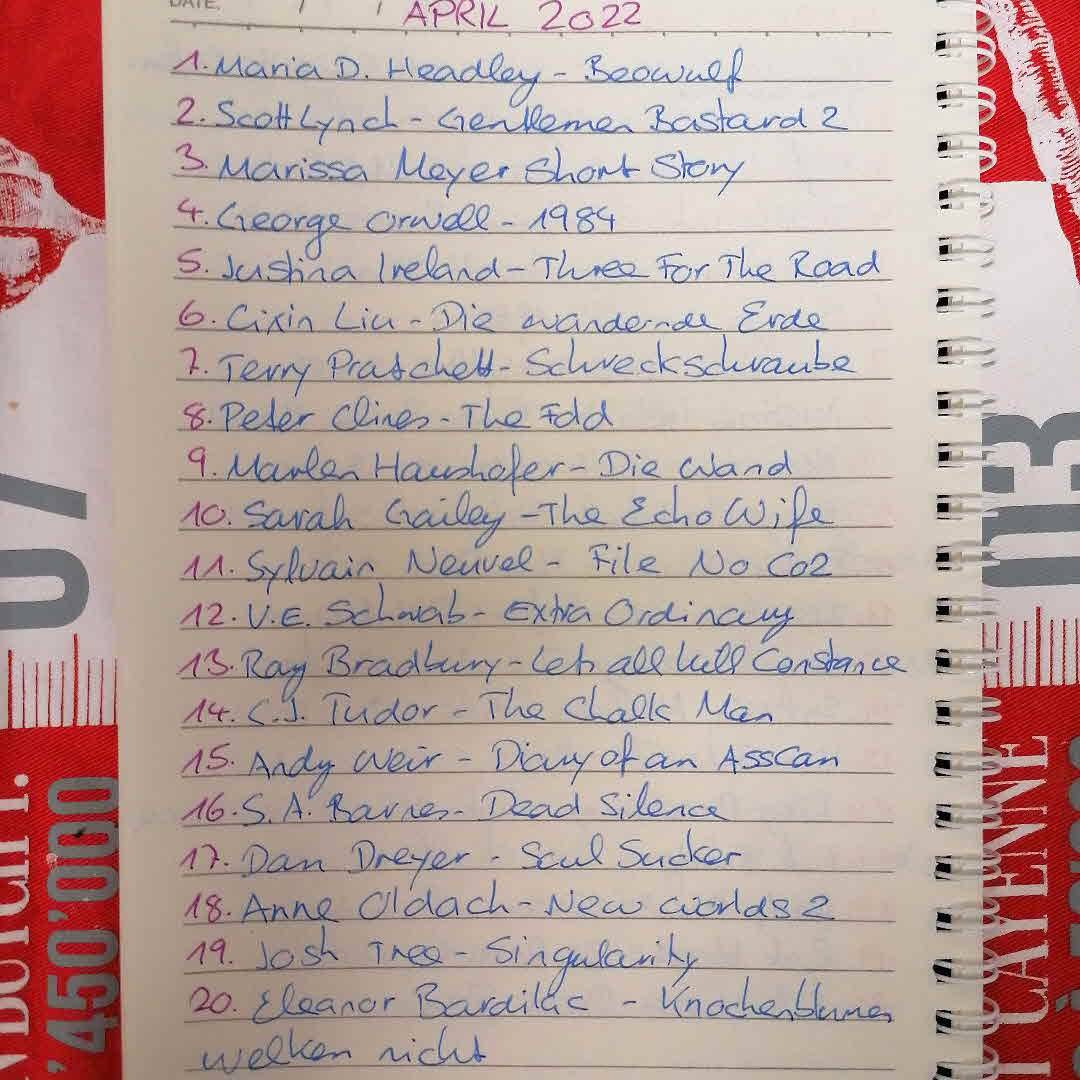 DATE: / /
APRIL 2022
1. Maria D. Headley - Beowulf
2. Scott Lynch - Gentlemen Bastard 2
3. Marissa Meyer Short Story
4. George Orwell - 1984
5. Justina Ireland - Three For The Road
6. Cixin Liu - Die wandernde Erde
7. Terry Pratchett - Schreckschraube
8. Peter Clines - The Fold
9. Marlen Haushofer - Die Wand
10. Sarah Gailey - The Echo Wife
11. Sylvain Neuvel - File No Co2
12. V.E. Schwab - Extra Ordinary
13. Ray Bradbury - Lets all kill Constance
14. C.J. Tudor - The Chalk Man
15. Andy Weir - Diary of an AssCan
16. S.A. Barnes - Dead Silence
17. Dan Dreyer - Soul Sucker
18. Anne Oldach - New Worlds 2
19. Josh Tree - Singularity
20. Eleanor Bardilac - Knochenblumen
welken nicht
07
450'000
03
CAYENNE